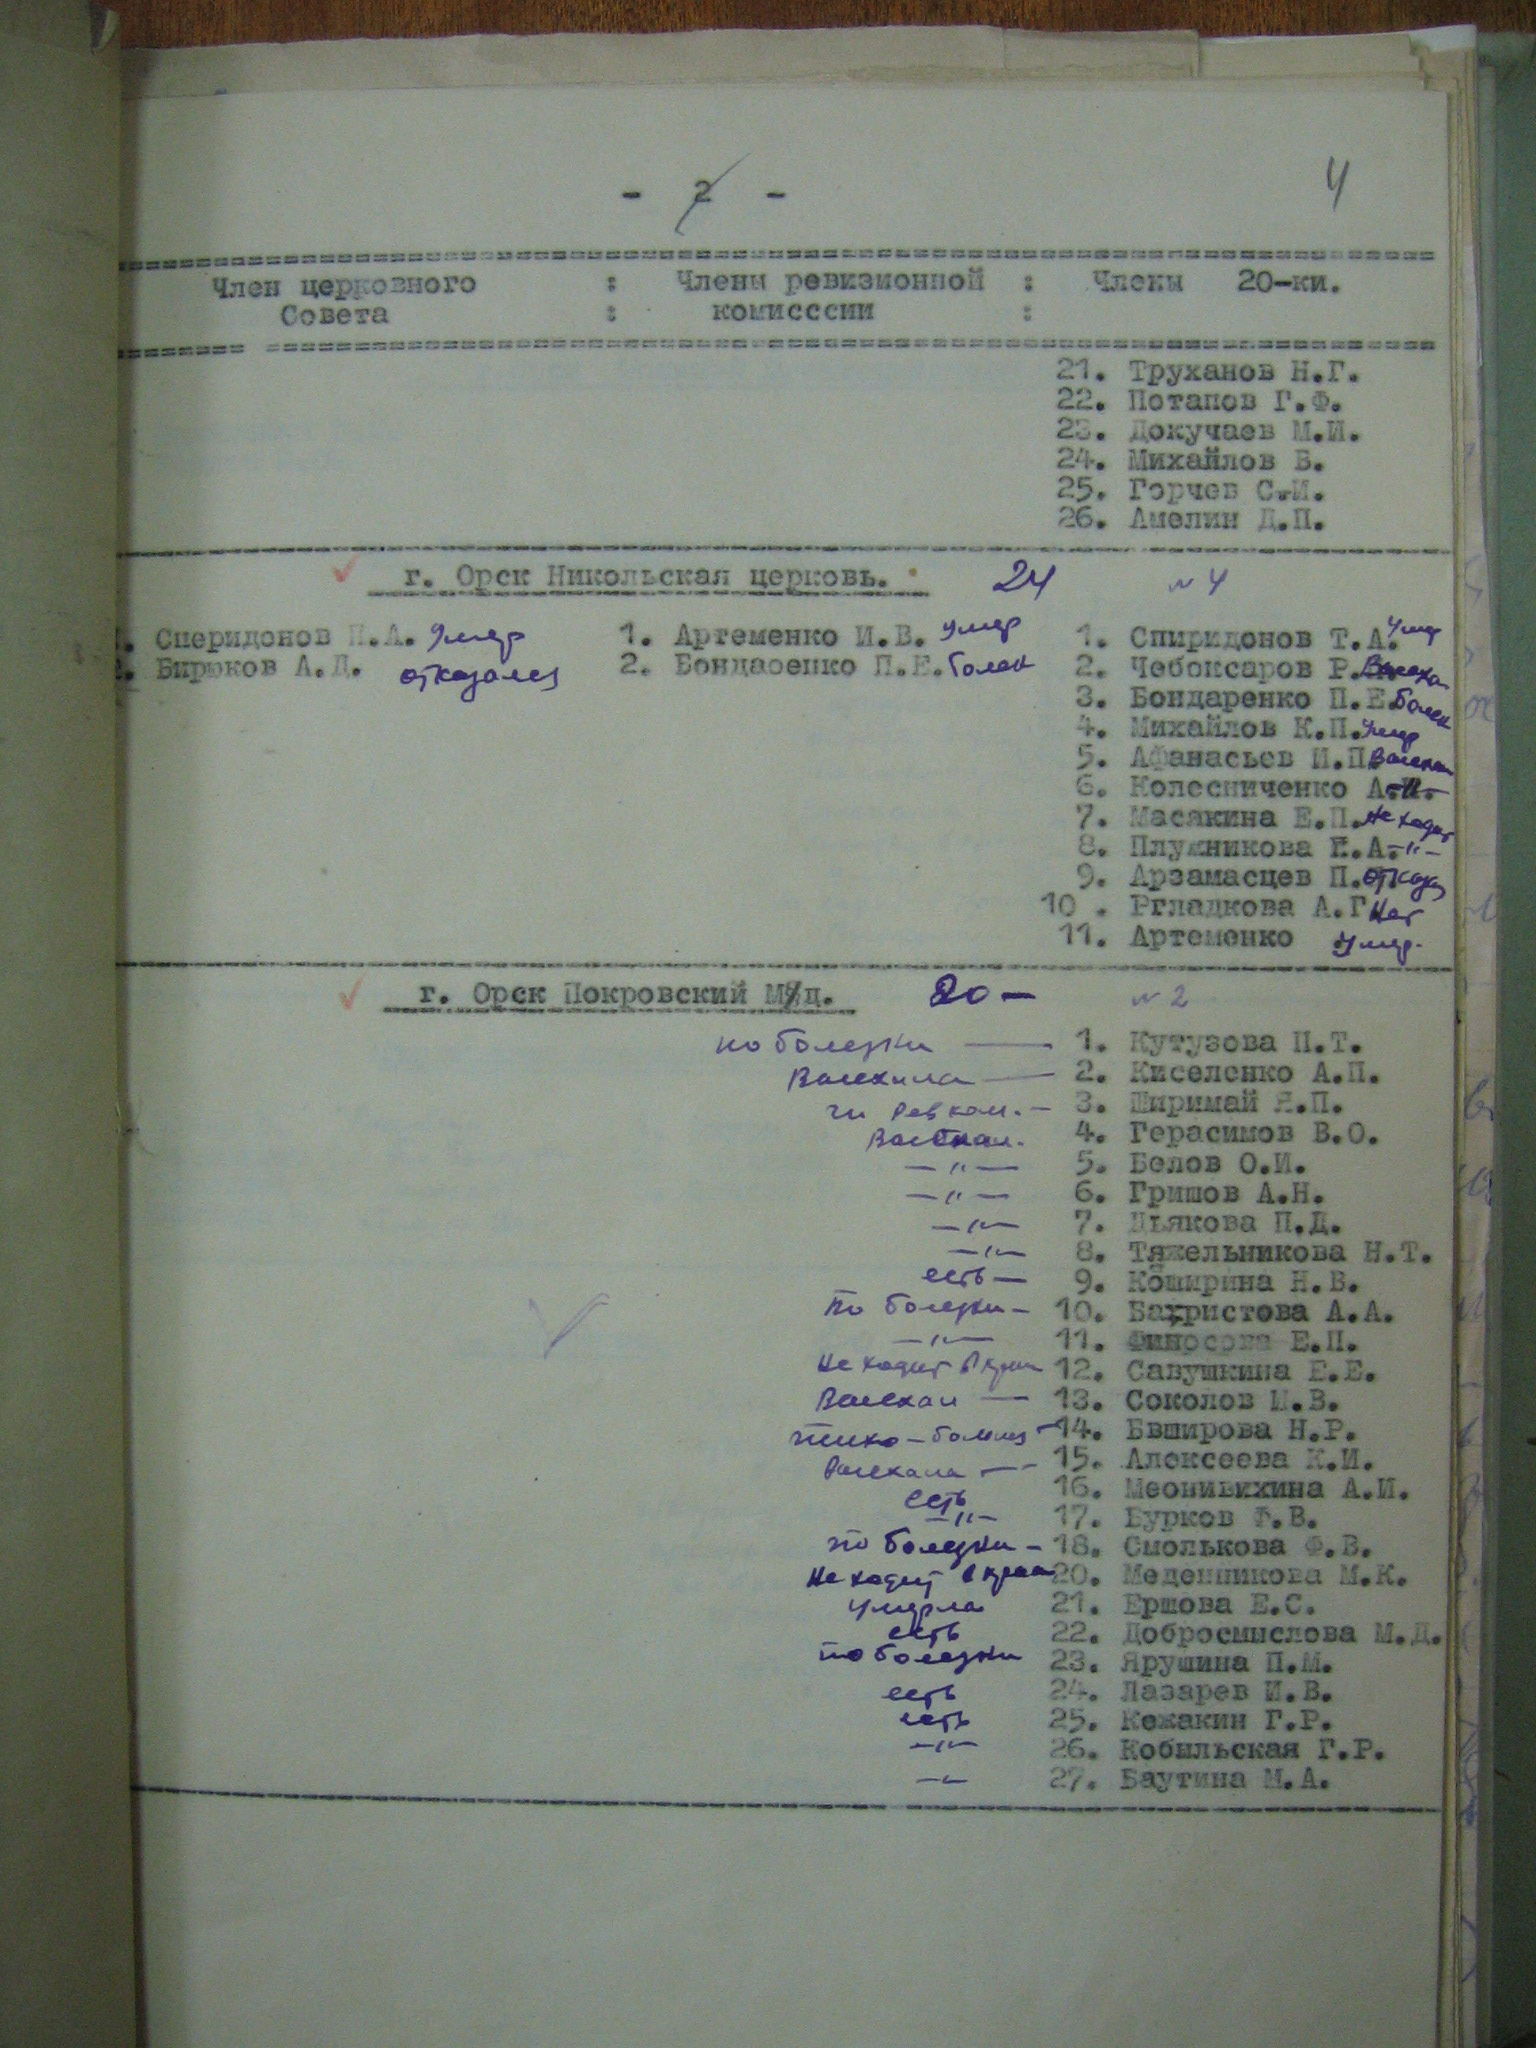 - 2 -
4
Член церковного : Члены ревизионной : Члены 20-ки.
Совета : комисссии :
21. Труханов Н.Г.
22. Потапов Г.Ф.
23. Докучаев М.И.
24. Михайлов В.
25. Горчев С.И.
26. Амелин Д.П.
г. Орск Никольская церковь. 24 №4
Сперидонов П.А. умер 1. Артеменко И.В. умер 1. Спиридонов Т.А. умер
Бирюков А.Д. отказался 2. Бондаоенко П.Е. болен 2. Чебоксаров Р. Выехал
3. Бондаренко П.Е. болен
4. Михайлов К.П. умер
5. Афанасьев И.П. Выехал
6. Колесниченко А. -"-
7. Масакина Е.П. не ходит
8. Плужникова Е.А. -"-
9. Арзамасцев П. отказ
10 . Ргладкова А.Г. Нет
11. Артеменко умер.
г. Орск Покровский М/д. 20 — №2
по болезни — 1. Кутузова П.Т.
Выехала — 2. Киселенко А.П.
чл Ревком. — 3. Ширимай Я.П.
Выехал. 4. Герасимов В.О.
— " — 5. Белов О.И.
— " — 6. Гришов А.Н.
— " — 7. Дьякова П.Д.
— " — 8. Тяжельникова Н.Т.
есть — 9. Коширина Н.В.
по болезни — 10. Бахристова А.А.
— " — 11. Финосова Е.П.
не ходит в храм 12. Савушкина Е.Е.
Выехал — 13. Соколов М.В.
— 14. Бвширова Н.Р.
Выехала — 15. Алексеева К.И.
есть 16. А.И.
— " — 17. Бурков Ф.В.
по болезни — 18. Смолькова Ф.В.
не ходит в храм 20. Меденникова М.К.
умерла 21. Ершова Е.С.
есть 22. Добросмыслова М.Д.
по болезни 23. Ярушина П.М.
есть 24. Лазарев И.В.
есть 25. Кежакин Г.Р.
— " — 26. Кобыльская Г.Р.
— " — 27. Баутина М.А.